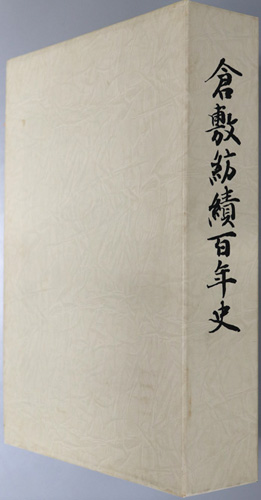 倉敷紡績百年史